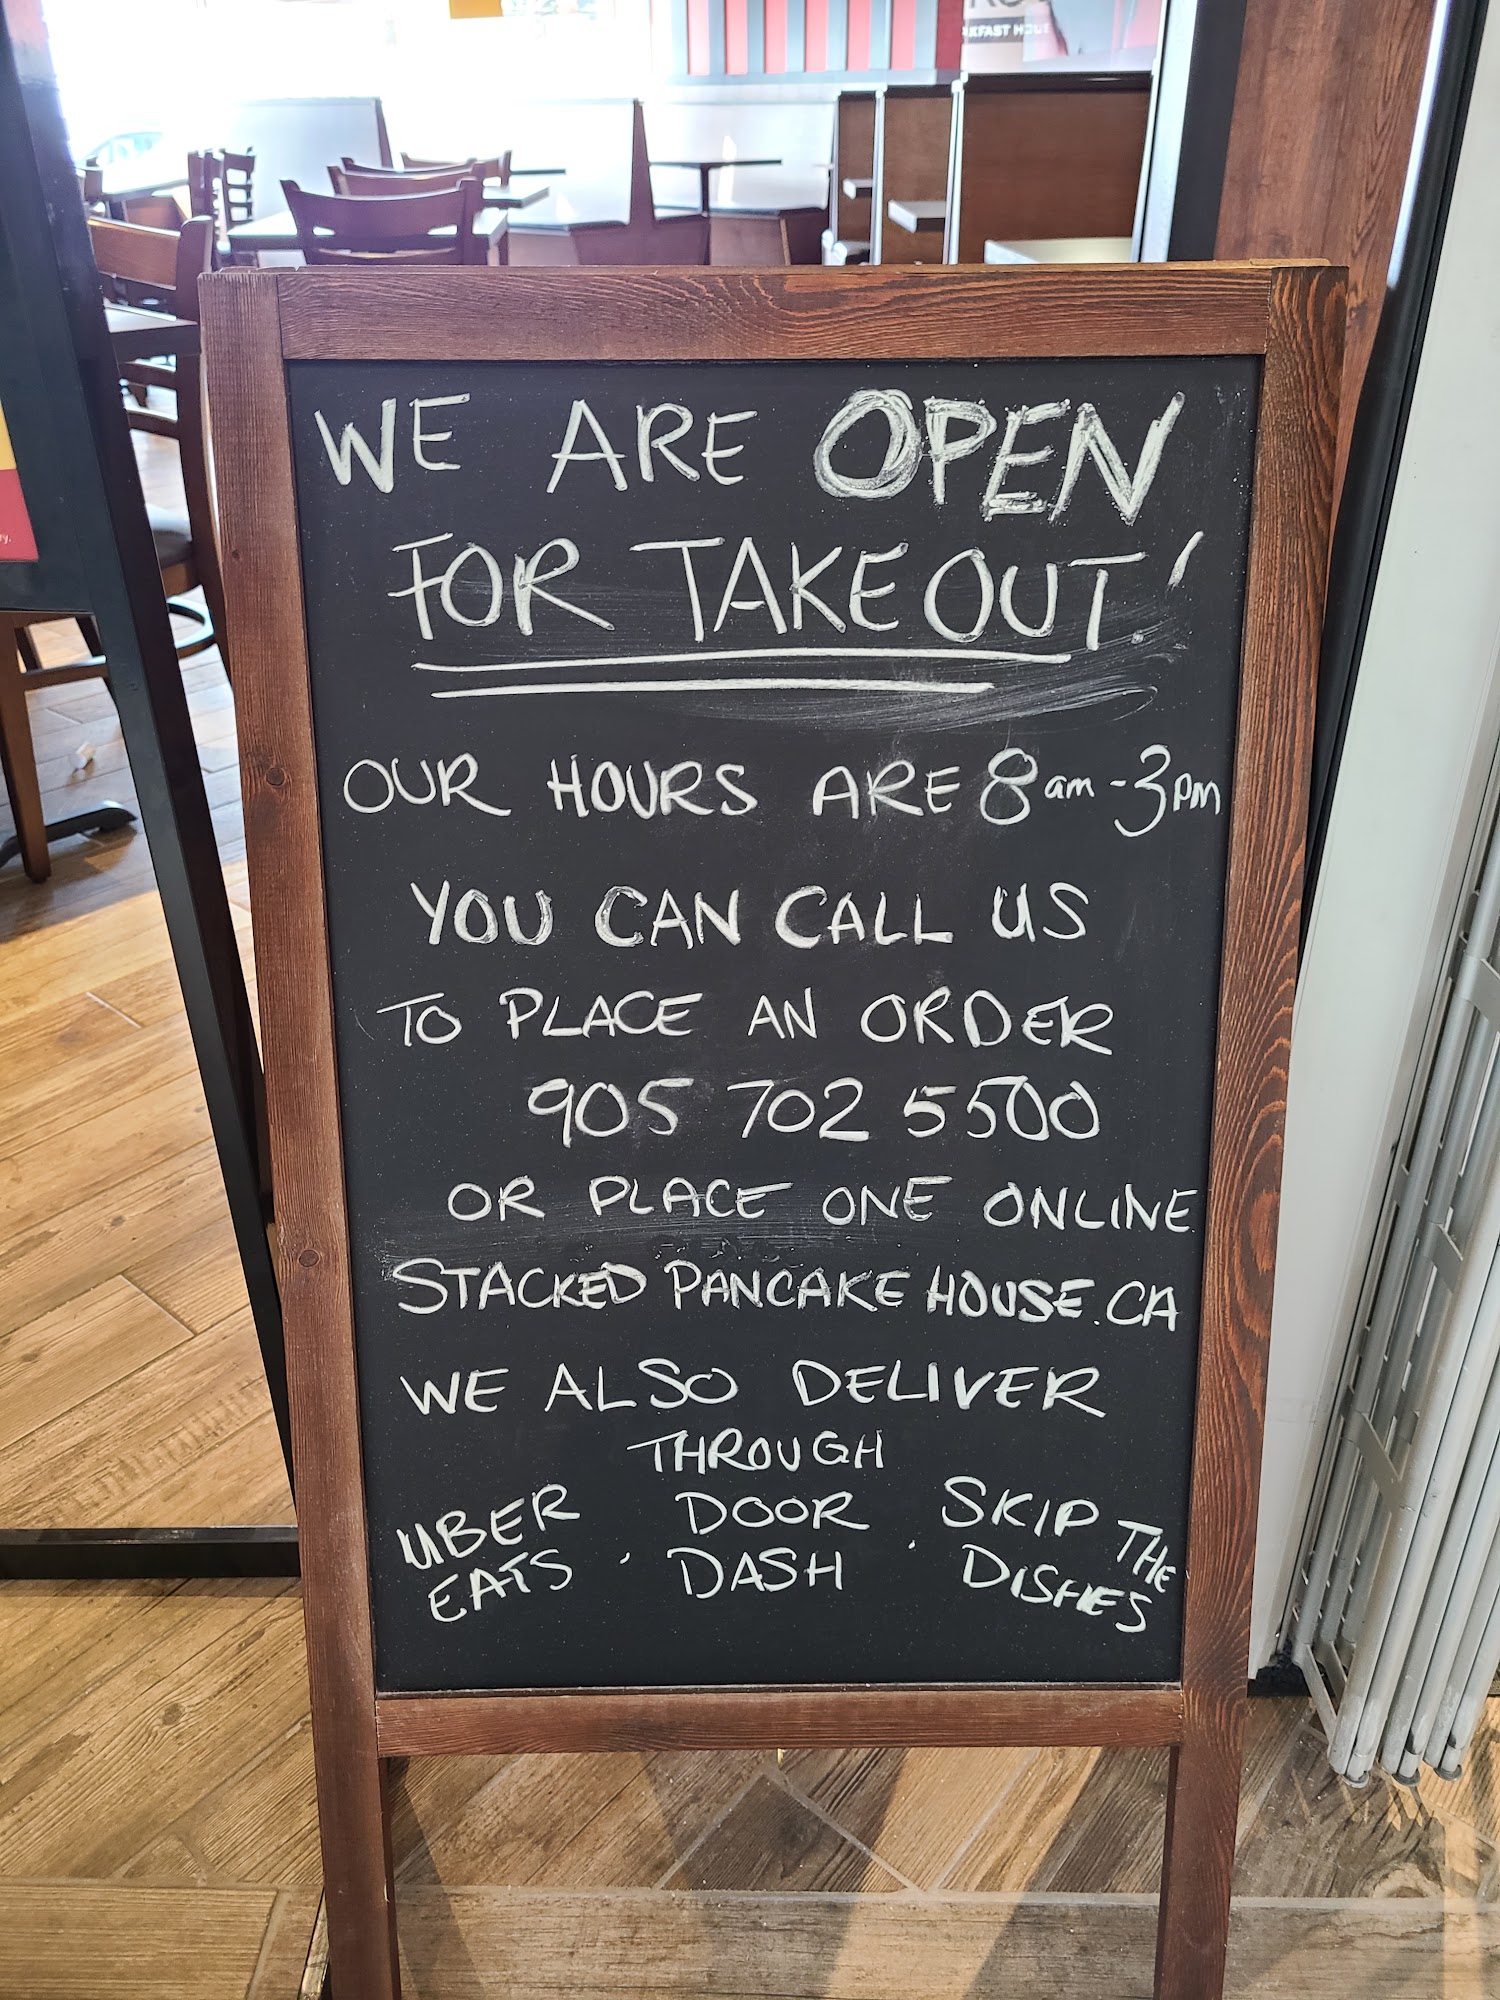 AKFAST HOUSE
ry.
WE ARE OPEN
FOR TAKEOUT!
OUR HOURS ARE 8am-3pm
YOU CAN CALL US
TO PLACE AN ORDER
905 702 5500
OR PLACE ONE ONLINE
STACKED PANCAKE HOUSE.CA
WE ALSO DELIVER
THROUGH
UBER EATS · DOOR DASH · SKIP THE DISHES